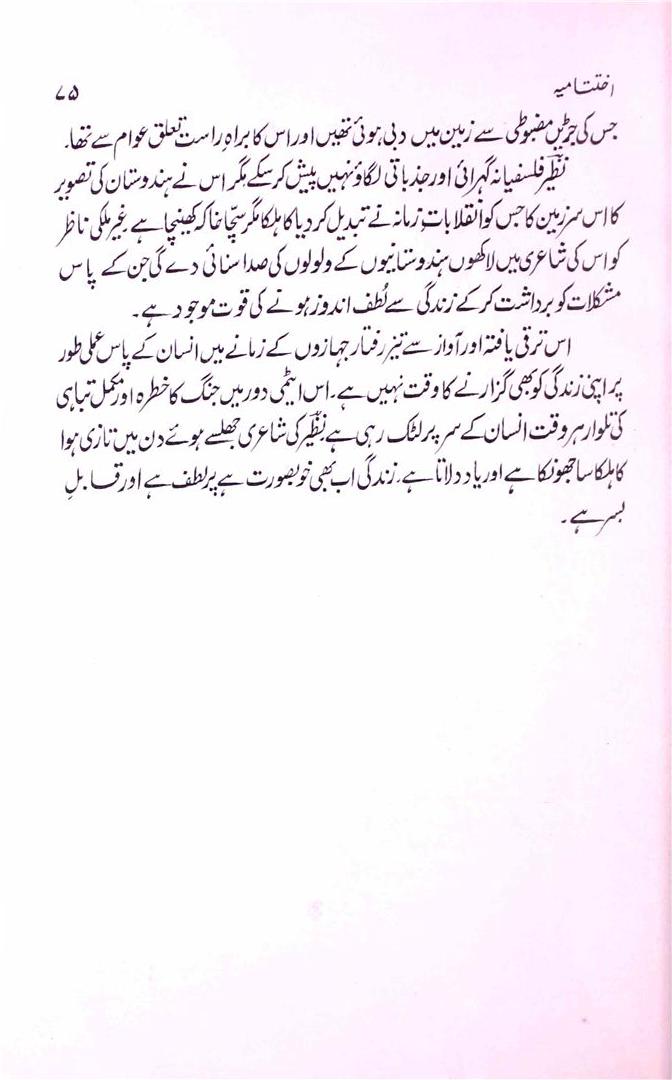 اختتامیہ ۷۵
جس کی جڑیں مضبوطی سے زمین میں دبی ہوئی تھیں اور اس کا براہِ راست تعلق عوام سے تھا۔
نظیرؔ فلسفیانہ گہرائی اور جذباتی لگاؤ نہیں پیش کر سکے مگر اس نے ہندوستان کی تصویر
کا اس سرزمین کا جس کو انقلاباتِ زمانہ نے تبدیل کر دیا کا ہلکا مگر سچّا خاکہ کھینچا ہے۔ غیر ملکی ناظر
کو اس کی شاعری میں لاکھوں ہندوستانیوں کے ولولوں کی صدا سنائی دے گی جن کے پاس
مشکلات کو برداشت کر کے زندگی سے لُطف اندوز ہونے کی قوت موجود ہے۔
اس ترقی یافتہ اور آواز سے تیز رفتار جہازوں کے زمانے میں انسان کے پاس عملی طور
پر اپنی زندگی کو بھی گزارنے کا وقت نہیں ہے۔ اس ایٹمی دور میں جنگ کا خطرہ اور مکمل تباہی
کی تلوار ہر وقت انسان کے سر پر لٹک رہی ہے۔ نظیرؔ کی شاعری جھلسے ہوئے دن میں تازی ہوا
کا ہلکا سا جھونکا ہے اور یاد دلاتا ہے۔ زندگی اب بھی خوبصورت ہے پر لطف ہے اور قابلِ
بسر ہے۔